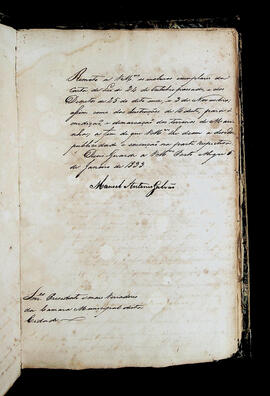 Remetto a V.Mces os inclusos exemplares da
Carta de Lei de 24 de Outubro passado, e dos
Decretos de 25 de dito mez, e 3 de Novembro,
assim como das Instrucções de 14 dito, para a
medição e demarcação dos terrenos de Mari-
nhas, a fim de que V.Mces lhe deem a devida
publicidade e execução na parte respectiva.
Deos Guarde a V.Mces Porto Alegre 8
de Janeiro de 1833
Manoel Antonio Galvão
Snres Presidente e mais Vereadores
da Camara Municipal desta
Cidade